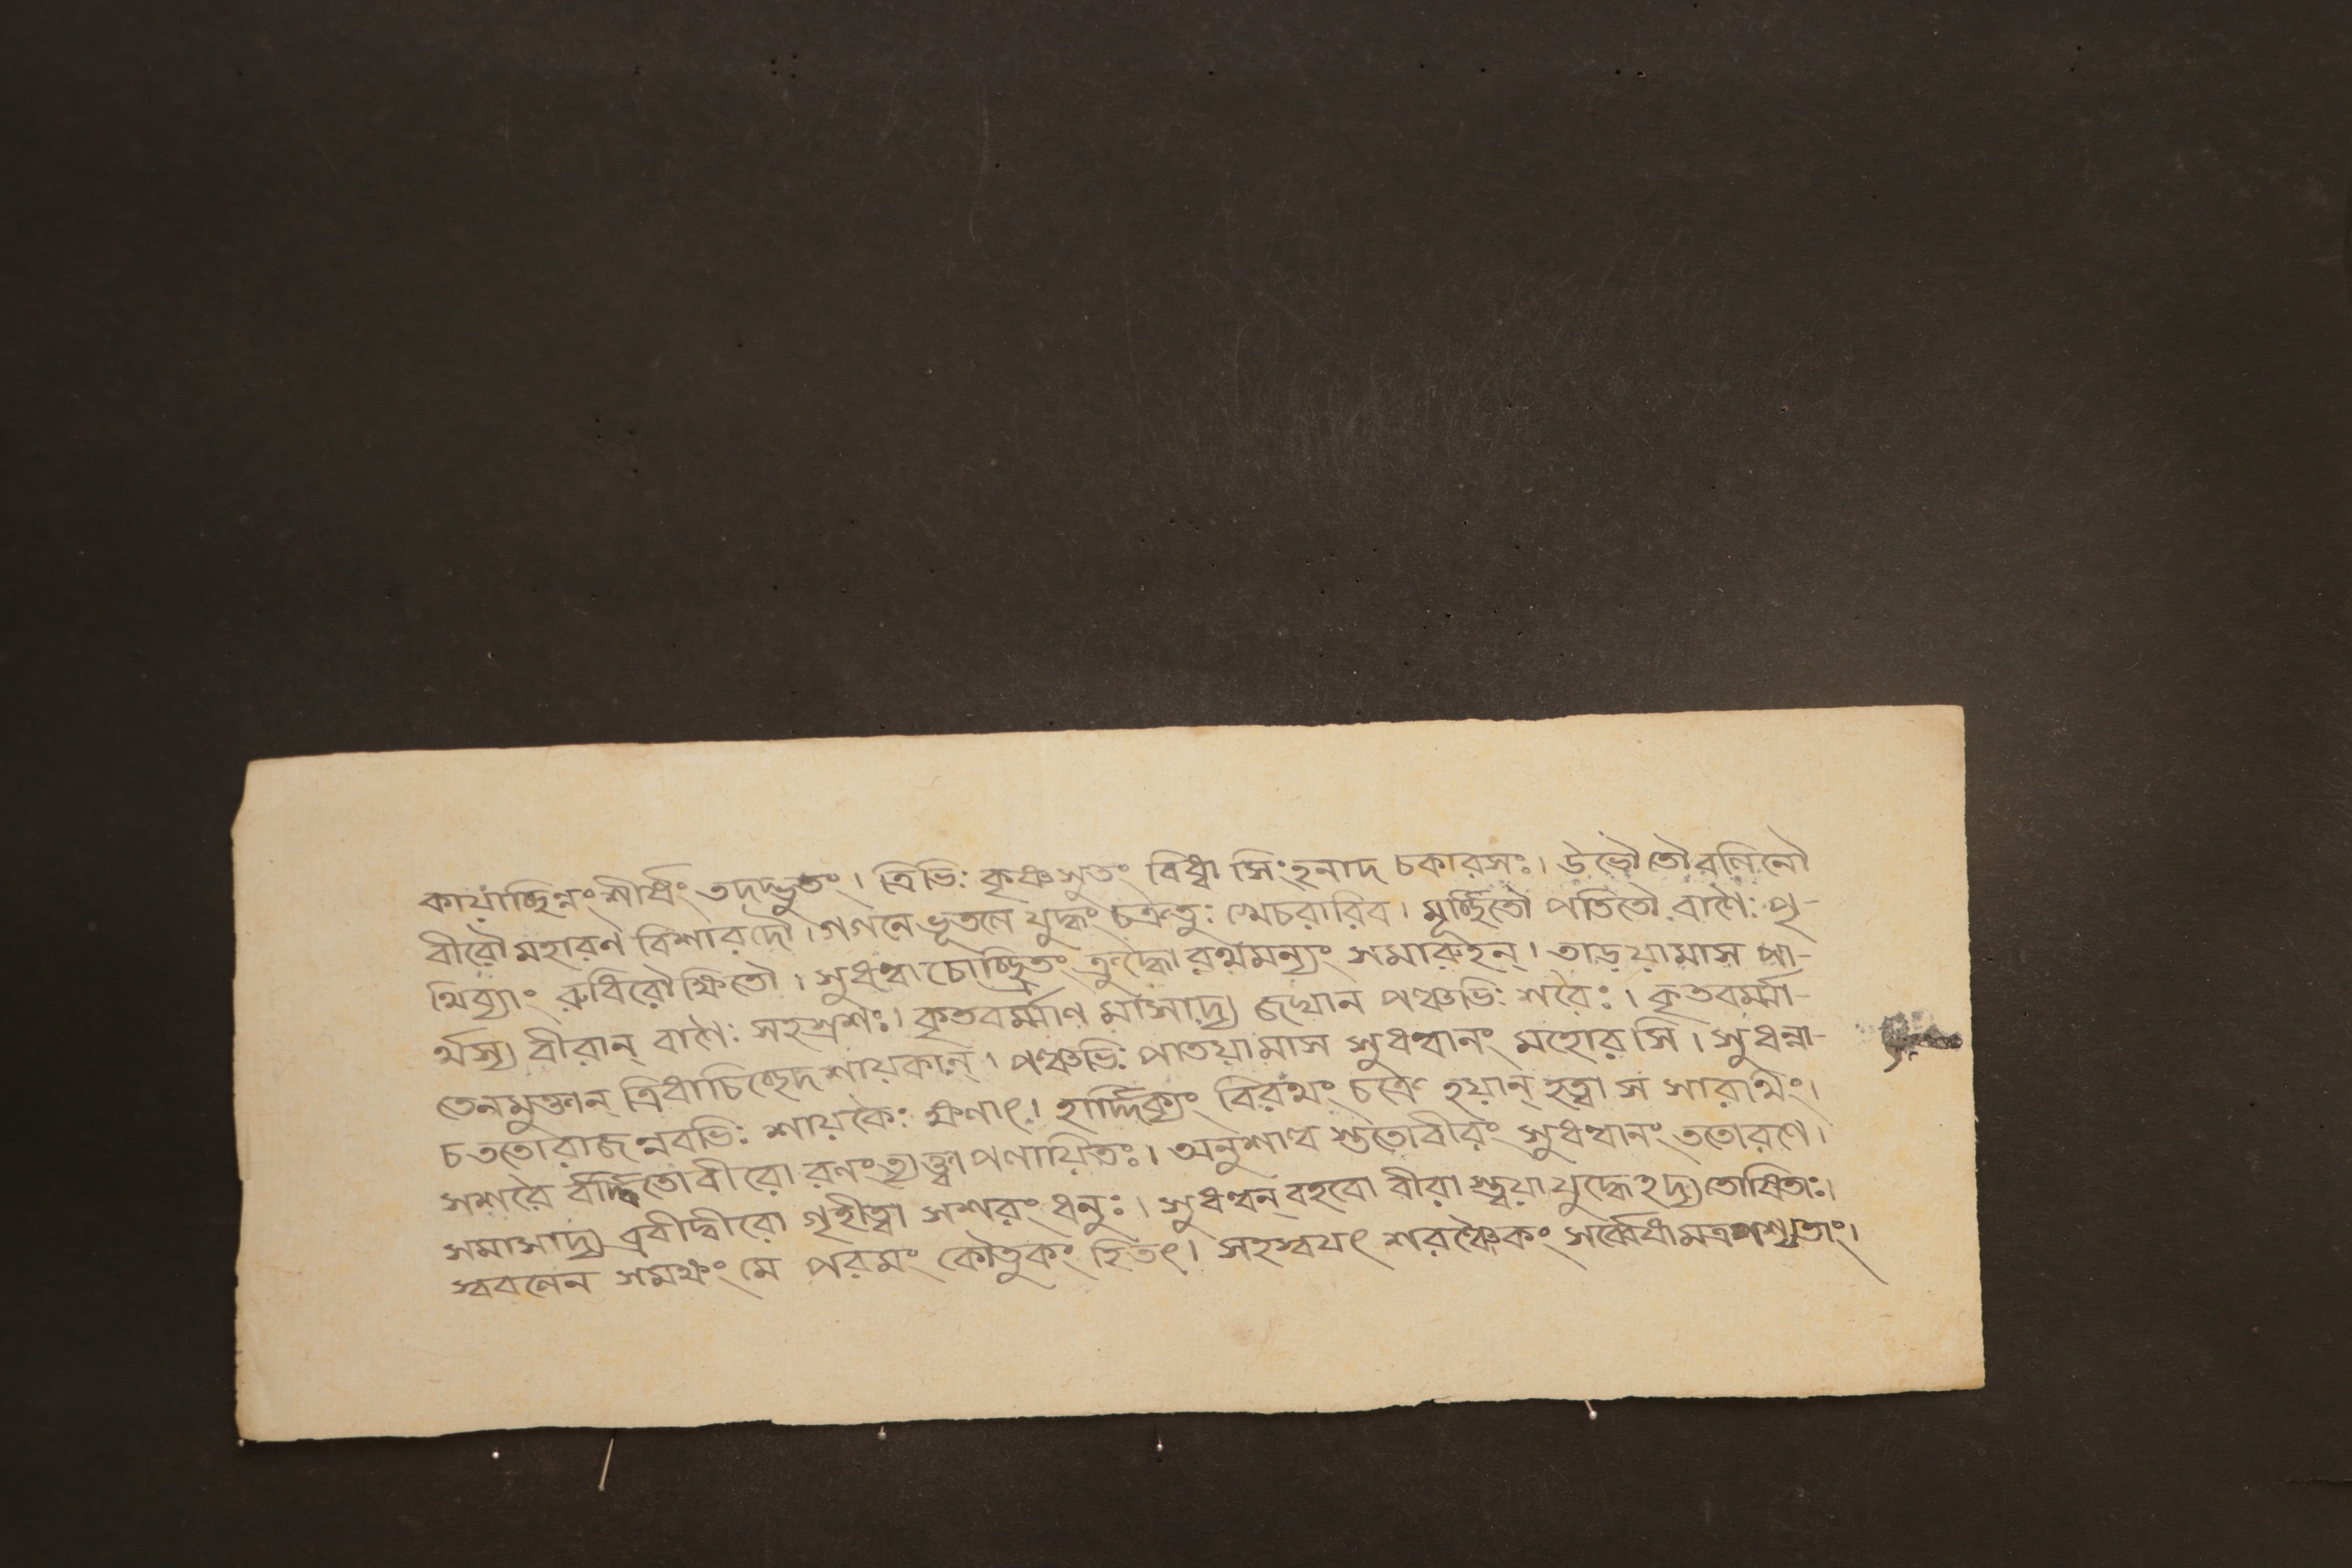 কায়াচ্ছিন্নং শীর্ষং তদদ্ভুতং। ত্রিভিঃ কৃষ্ণসুতং বিধ্বা সিংহনাদ চকারসঃ। উভৌ তৌ রণিনৌ
বীরৌ মহারণ বিশারদৌ। গগনে ভূতলে যুদ্ধং চক্রতুঃ খেচরারিব। মূর্চ্ছিতৌ পতিতৌ বাণৈঃ পৃ-
থিব্যাং রুধিরৌক্ষিতৌ। সুধন্বা চোচ্ছ্রিতং ক্রুদ্ধো রথমন্যং সমারুহন্। তাড়য়ামাস পা-
র্থস্য বীরান্ বাণৈঃ সহস্রশঃ। কৃতবর্ম্মাণ মাসাদ্য জঘান পঞ্চভিঃ শরৈঃ। কৃতবর্ম্মা-
তেনমুক্তান্ ত্রিধাচিচ্ছেদ শায়কান্। পঞ্চভিঃ পাতয়ামাস সুধন্বানং মহোরসি। সুধন্বা-
চ ততোরাজন্নবভিঃ শায়কৈঃ ক্ষণাৎ। হার্দ্দিক্যং বিরথং চক্রে হয়ান্ হত্বা স সারথিং।
সশরৈ র্বর্দ্ধিতোবীরো রণং ত্যক্ত্বা পলায়িতঃ। অনুশাল্ব স্ততোবীরং সুধন্বানং ততোরণে।
সমাসাদ্য ব্রবীদ্বীরো গৃহীত্বা সশরং ধনুঃ। সুধন্বন্ বহবো বীরা স্ত্বয়া যুদ্ধেহদ্য তোষিতাঃ।
স্ববলেন সমক্ষং মে পরমং কৌতুকং হিতৎ। সহস্বযৎ শরঞ্চৈকং সর্ব্বেষামত্রপশ্যতাং।